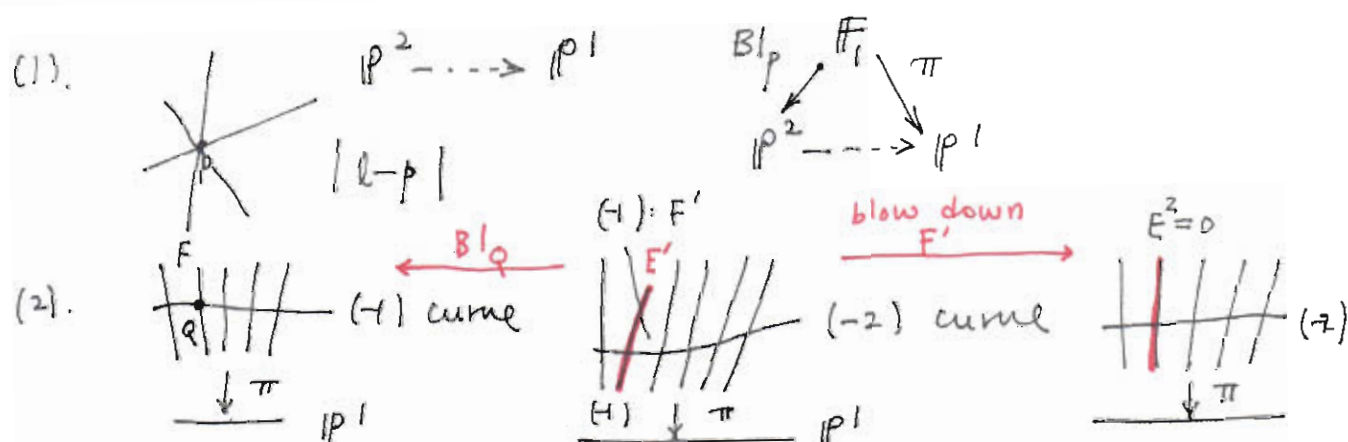 (1).
ℙ² ---> ℙ¹
p
|l-p|
Bl_p 𝔽₁ π
ℙ² ---> ℙ¹
(2).
F
Q
(-1) curve
π
ℙ¹
Bl_Q
(-1): F'
E'
(-2) curve
(-1)
π
ℙ¹
blow down
F'
E²=0
(-2)
π